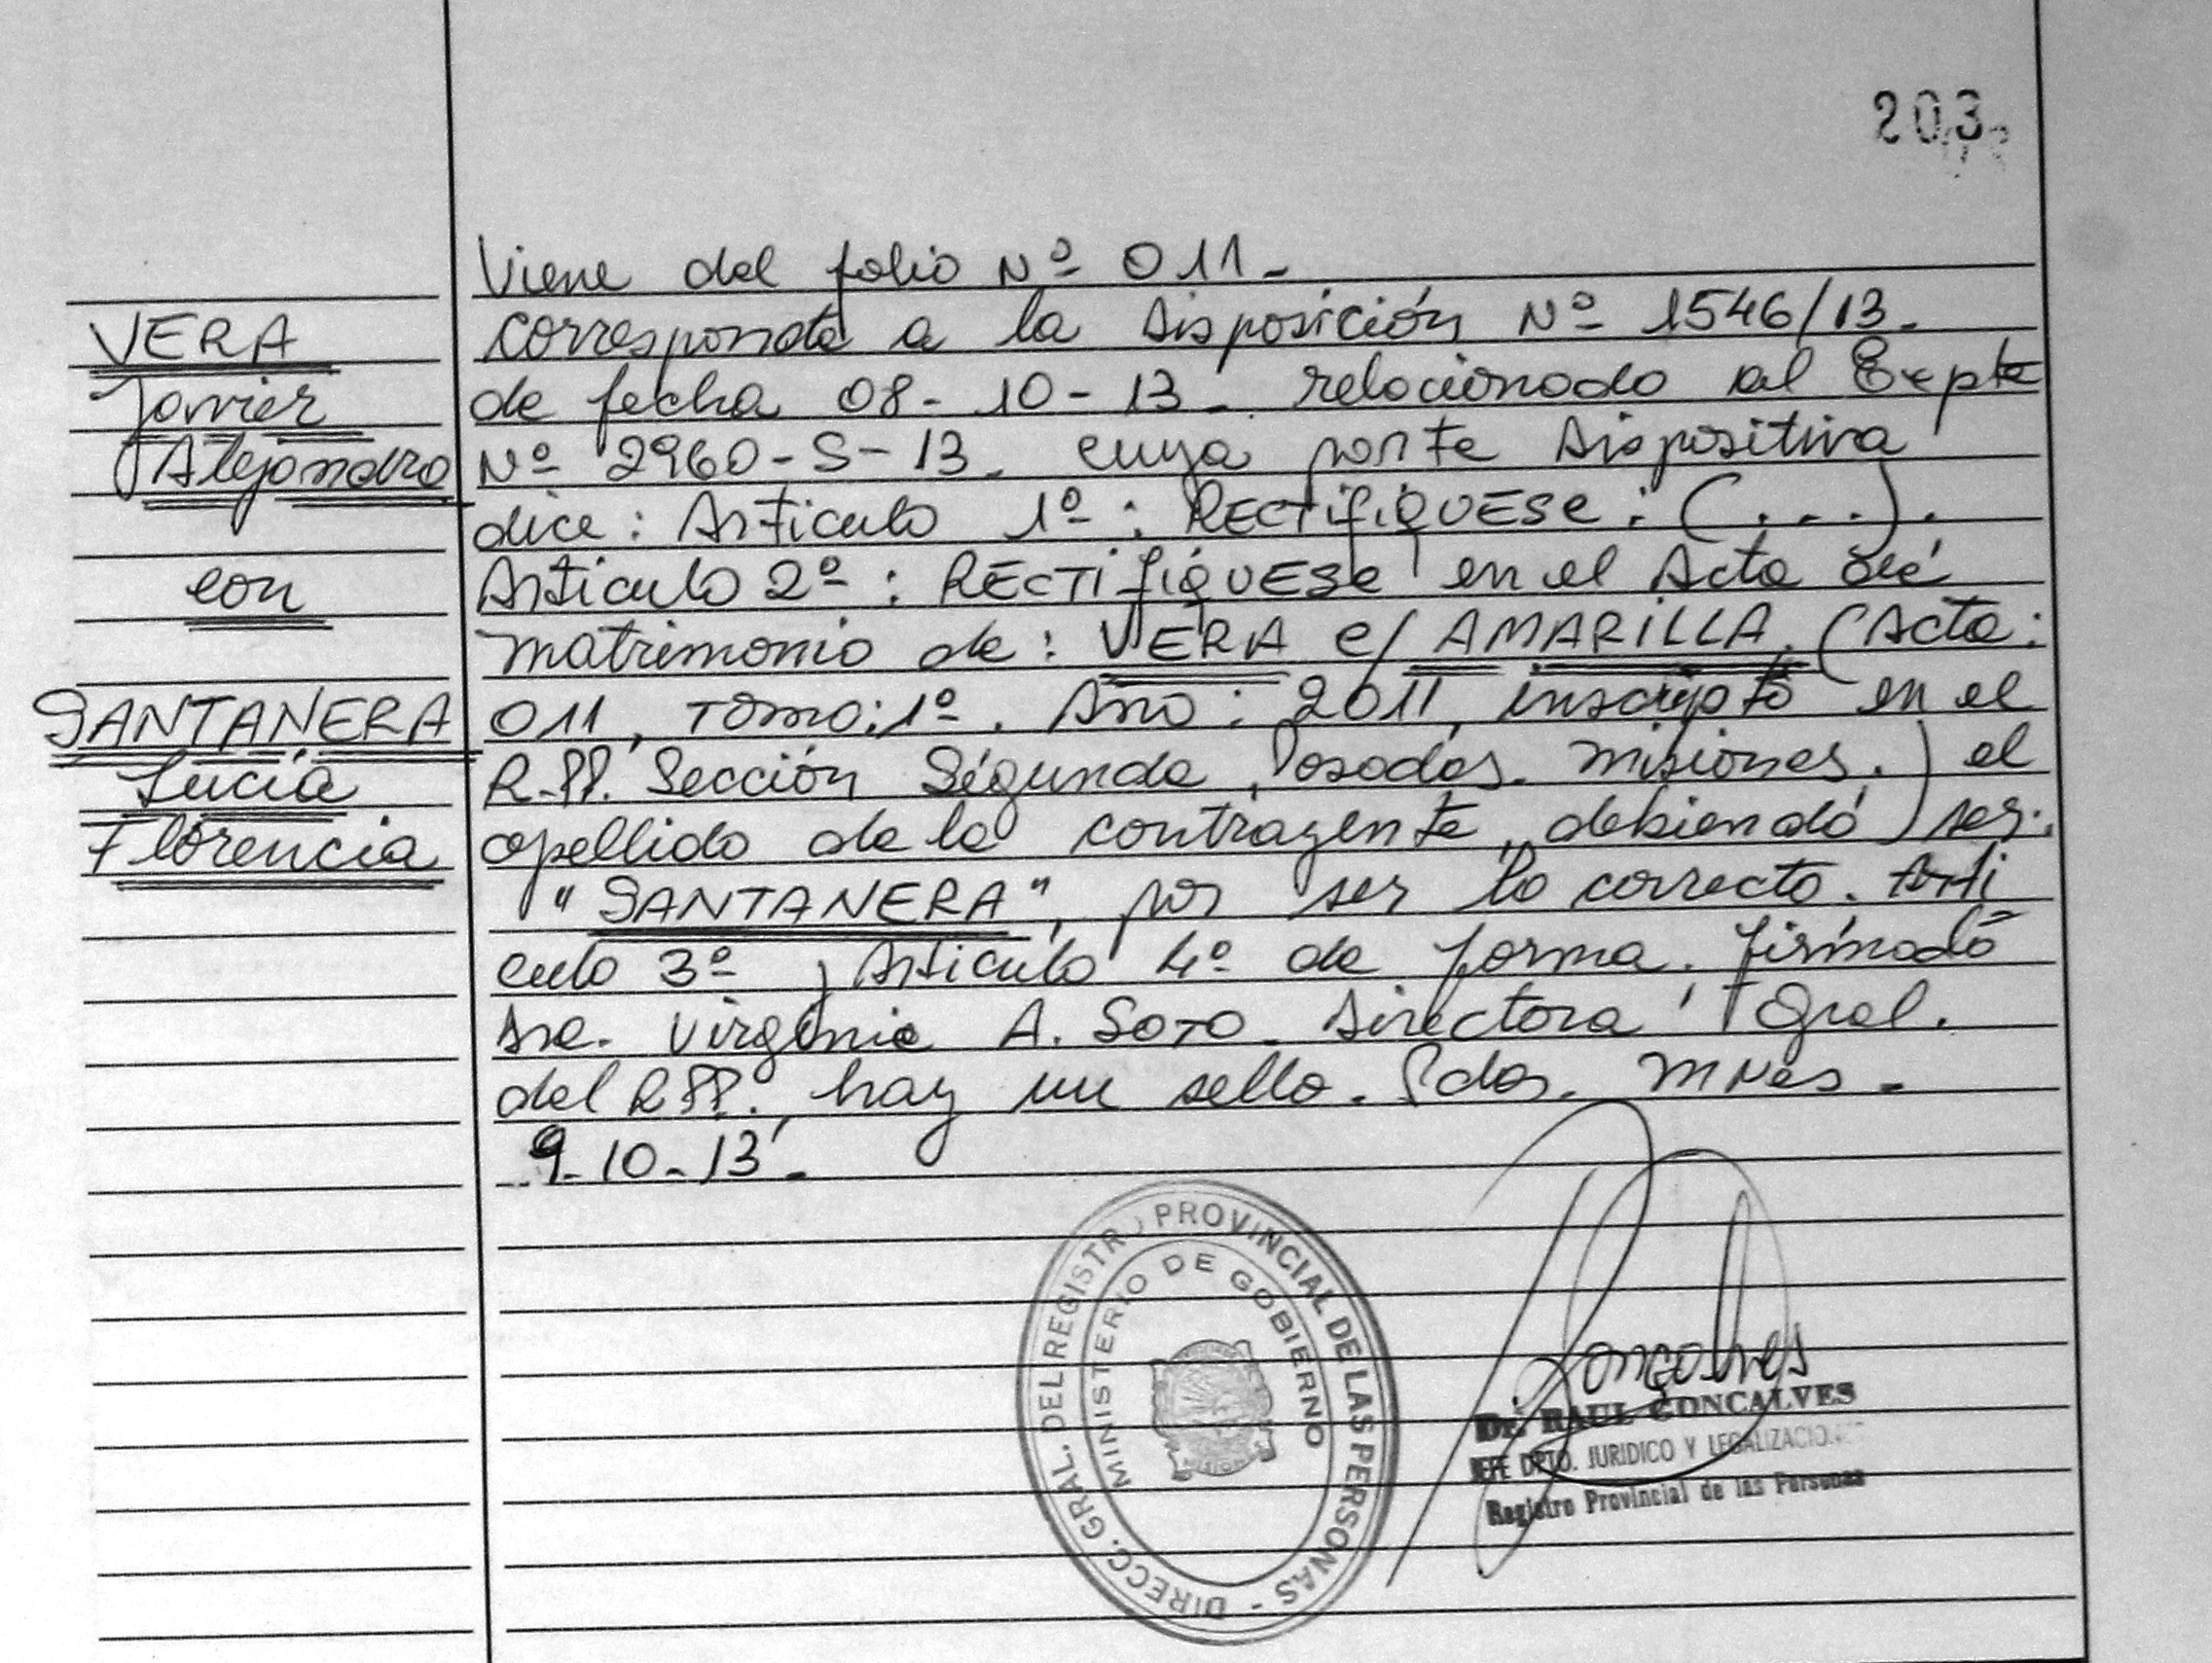 203
VERA
Javier
Alejandro
con
SANTANERA
Lucía
Florencia
Viene del folio Nº 011.-
corresponde a la Disposición Nº 1546/13.
de fecha 08-10-13. relacionado al Expte
Nº 2960-S-13. cuya parte Dispositiva
dice: Articulo 1º: RECTIFIQUESE: (....).
Articulo 2º: RECTIFIQUESE en el Acta de
matrimonio de: VERA c/ AMARILLA. (Acta:
011, Tomo: 1º. Año: 2011, inscripto en el
R.PP. Sección Segunda, Posadas. Misiones.) el
apellido de la contrayente, debiendo ser:
"SANTANERA", por ser lo correcto. Arti
culo 3º, Articulo 4º de forma. Firmado
Sra. Virginia A. Soto. Directora Gral.
del RPP. hay un sello. Pdas. Mnes.-
9-10-13.-
DIRECC. GRAL. DEL REGISTRO PROVINCIAL DE LAS PERSONAS -
MINISTERIO DE GOBIERNO
Goncalves
Dr. RAUL GONCALVES
JEFE DPTO. JURIDICO Y LEGALIZACIONES
Registro Provincial de las Personas